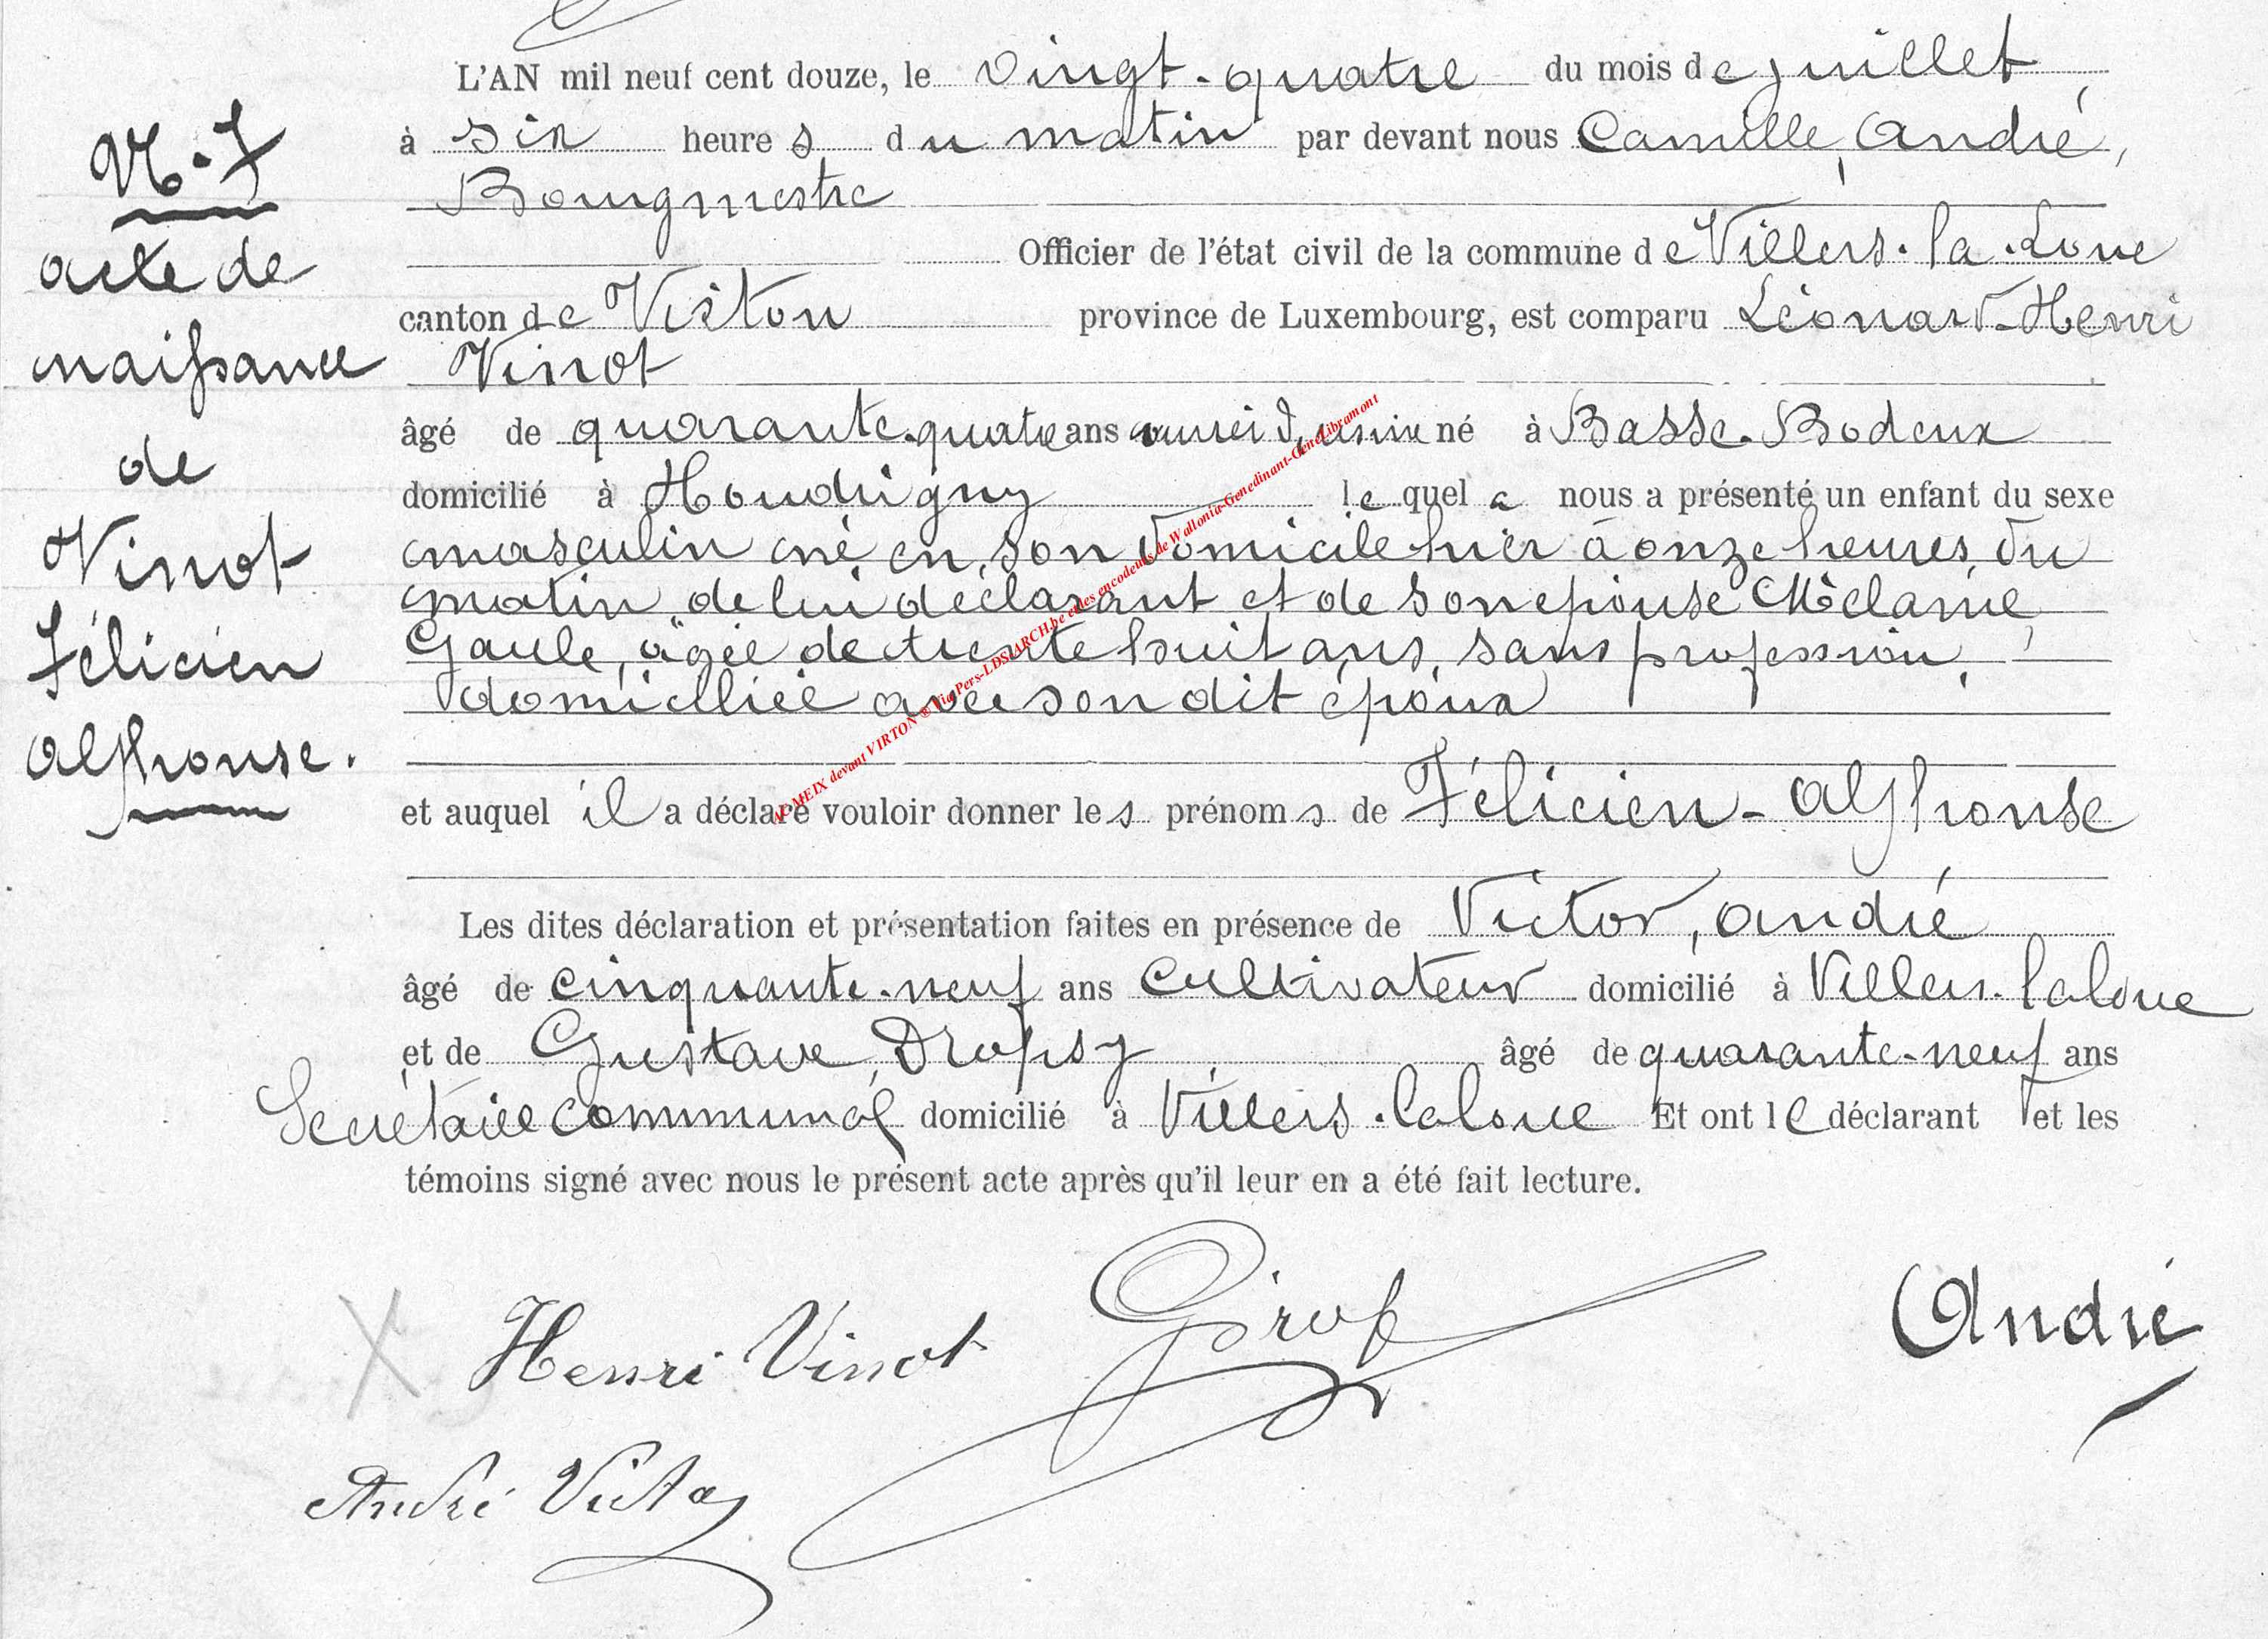 L'AN mil neuf cent douze, le vingt-quatre du mois de juillet
à six heures du matin par devant nous Camille, André,
Bourgmestre
Officier de l'état civil de la commune de Villers-la-Loue
canton de Virton province de Luxembourg, est comparu Léonard-Henri
Vinot
âgé de quarante-quatre ans né à Basse-Bodeux
domicilié à Houdrigny lequel a nous a présenté un enfant du sexe
masculin né en son domicile hier à onze heures du
matin de lui déclarant et de son épouse Mélanie
Gaule, âgée de trente huit ans, sans profession,
domiciliée avec son dit époux
et auquel il a déclaré vouloir donner les prénoms de Félicien-Alphonse
Les dites déclaration et présentation faites en présence de Victor, André
âgé de cinquante-neuf ans cultivateur domicilié à Villers-laloue
et de Gustave, Dropsy, âgé de quarante-neuf ans
Secrétaire communal domicilié à Villers-laloue Et ont le déclarant et les
témoins signé avec nous le présent acte après qu'il leur en a été fait lecture.
N. 7
acte de
naissance
de
Vinot
Félicien
Alphonse.
AE MEIX devant VIRTON © Via Pers-LDS/ARCH.be et les encodeurs de Wallonia-Genedinant-GeneLibramont
Henri Vinot
André
André Victor